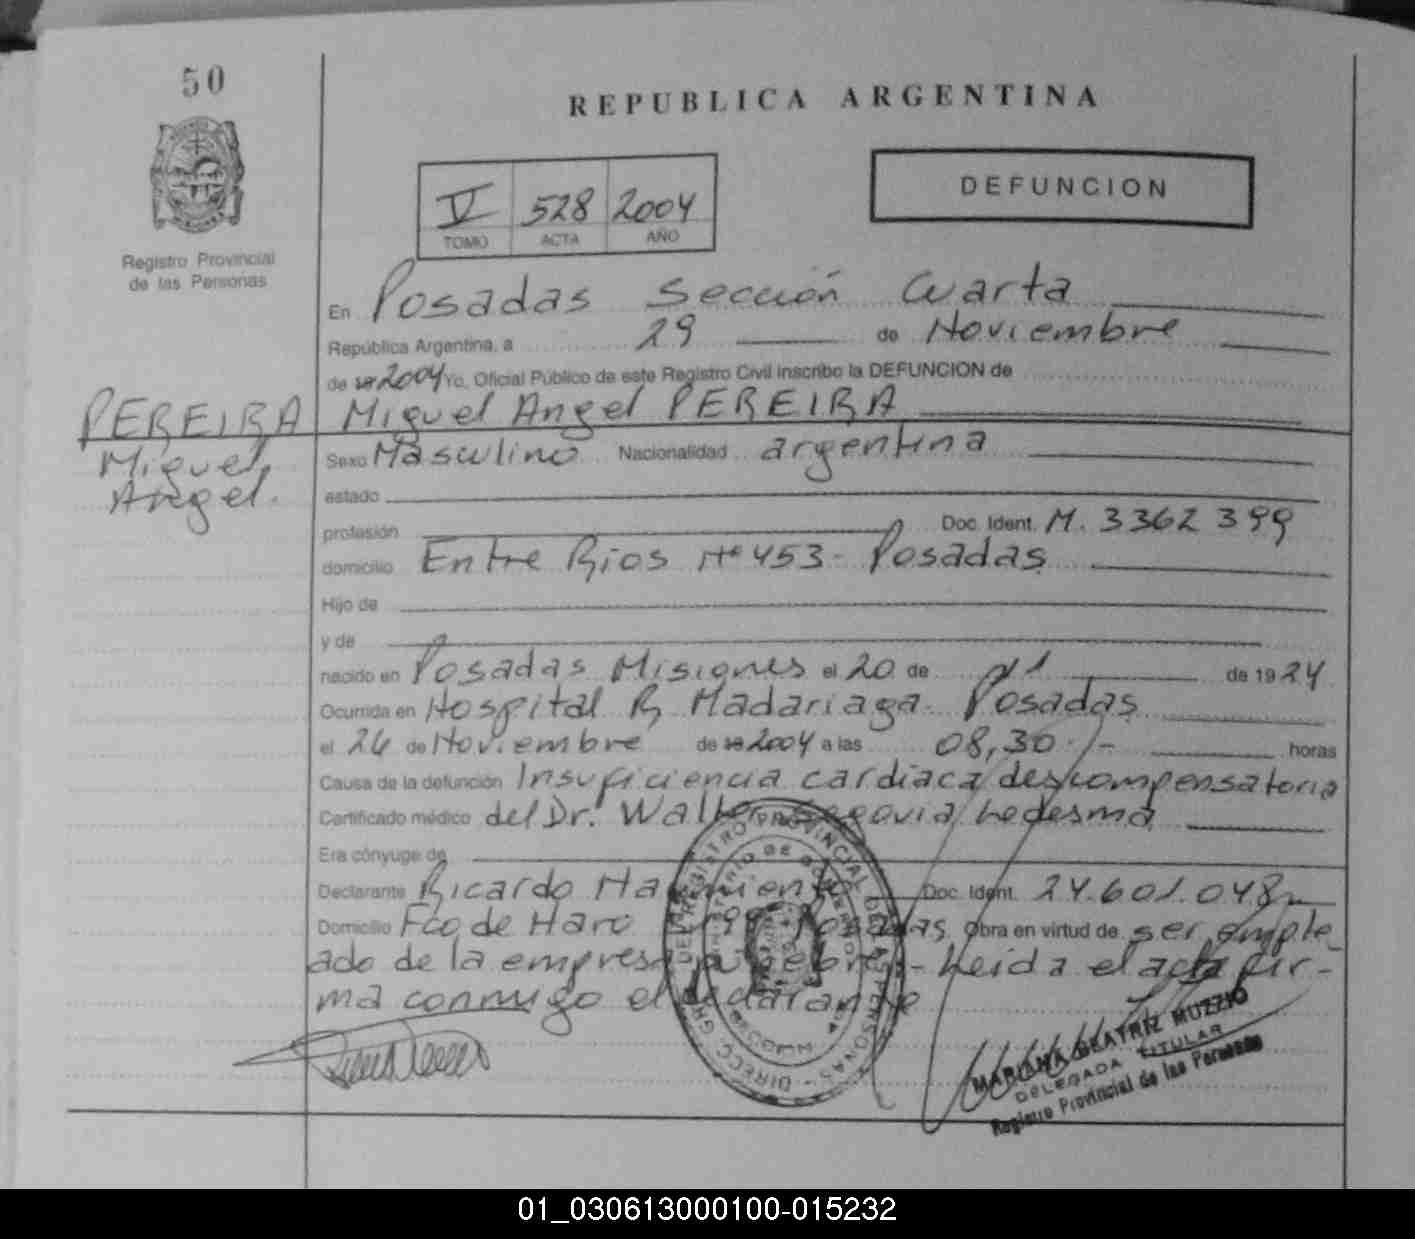 50
REPUBLICA ARGENTINA
V 528 2004
TOMO ACTA AÑO
DEFUNCION
Registro Provincial
de las Personas
En Posadas Sección Cuarta
República Argentina, a 29 de Noviembre
de 2004 Yo, Oficial Público de este Registro Civil inscribo la DEFUNCION de
PEREIRA Miguel Angel PEREIRA
Miguel
Angel.
Sexo Masculino Nacionalidad argentina
estado
profesión Doc. Ident. M. 3362 399
domicilio Entre Rios Nº 453 - Posadas
Hijo de
y de
nacido en Posadas Misiones el 20 de de 1924
Ocurrida en Hospital R. Madariaga - Posadas
el 26 de Noviembre de 2004 a las 08,30 horas
Causa de la defunción Insuficiencia cardiaca descompensatoria
Certificado médico del Dr. Walter Segovia Ledesma
Era cónyuge de
Declarante Ricardo Doc. Ident. 24.601.048
Domicilio Fco de Haro Posadas Obra en virtud de ser emple
ado de la empresa - Leida el acta fir-
ma conmigo el declarante
MARIANA BEATRIZ MUZZIO
DELEGADA TITULAR
Registro Provincial de las Personas
01_030613000100-015232